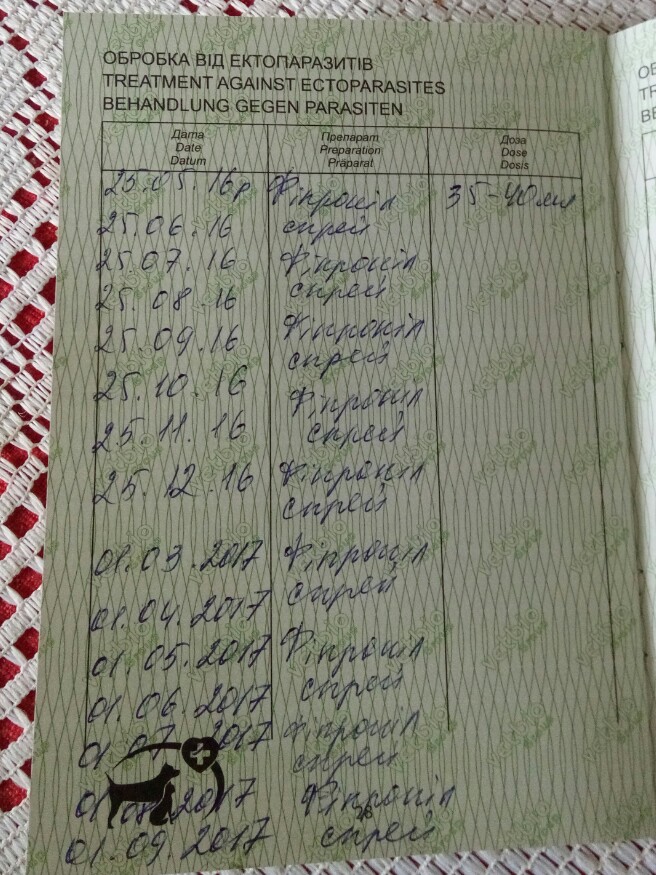 ОБРОБКА ВІД ЕКТОПАРАЗИТІВ
TREATMENT AGAINST ECTOPARASITES
BEHANDLUNG GEGEN PARASITEN
Дата Препарат Доза
Date Preparation Dose
Datum Präparat Dosis
25.05.16р Фіпроніл 35-40мл
25.06.16 спрей
25.07.16 Фіпроніл
25.08.16 спрей
25.09.16 Фіпроніл
спрей
25.10.16 Фіпроніл
25.11.16 спрей
25.12.16 Фіпроніл
спрей
01.03.2017 Фіпроніл
спрей
01.04.2017
01.05.2017 Фіпроніл
01.06.2017 спрей
01.07.2017 Фіпроніл
спрей
01.08.2017 Фіпроніл
01.09.2017 спрей